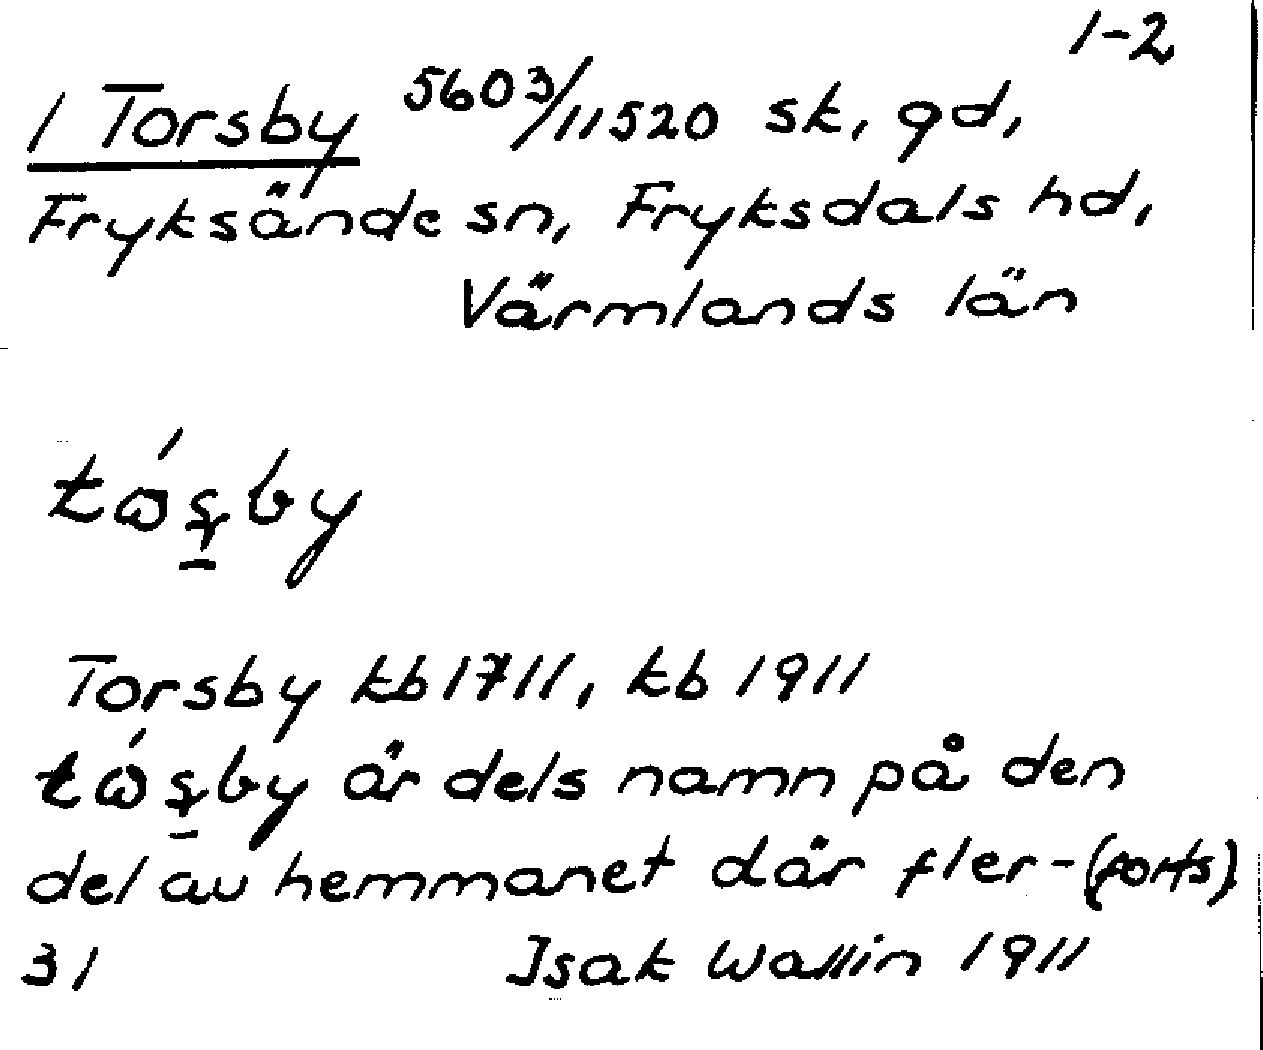 1-2
1 Torsby 5603/11520 sk, gd,
Fryksände sn, Fryksdals hd,
Värmlands län
Torsby kb 1711, kb 1911
är dels namn på den
del av hemmanet där fler-(forts)
31 Isak Wallin 1911